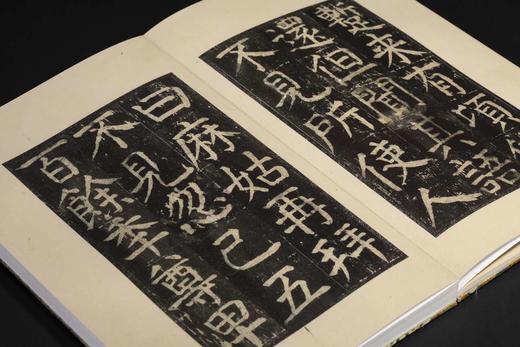 蹔来有頃
還但聞其語
不見所使人
曰麻姑再拜
不見忽已五
百餘年尊卑